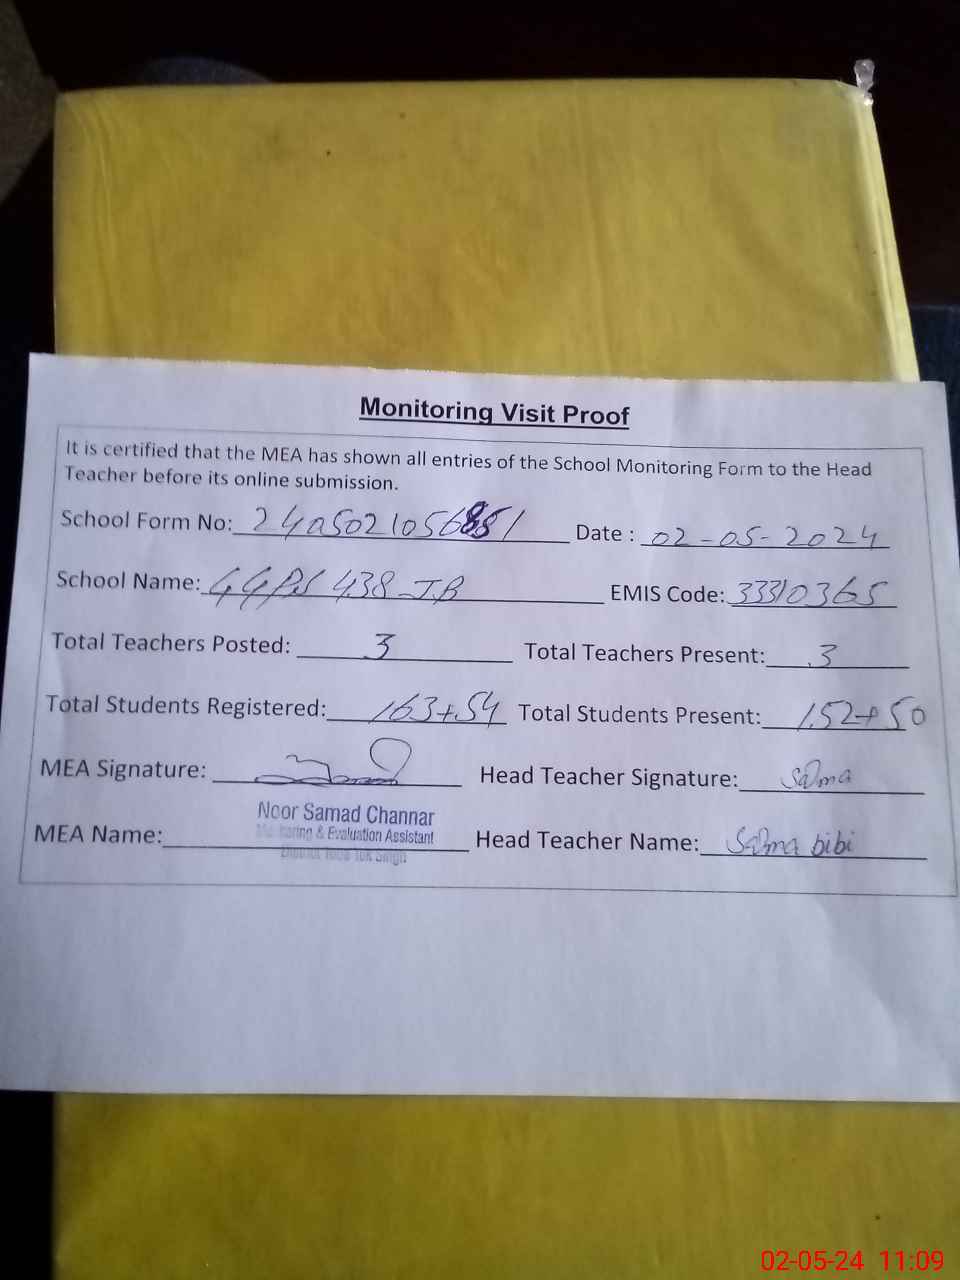 Monitoring Visit Proof
It is certified that the MEA has shown all entries of the School Monitoring Form to the Head
Teacher before its online submission.
School Form No: Date : 02-05-2024
School Name: GGPS 438-JB EMIS Code: 33310365
Total Teachers Posted: 3 Total Teachers Present: 3
Total Students Registered: 163+54 Total Students Present: 152+50
MEA Signature: Head Teacher Signature: Salma
Noor Samad Channar
Monitoring & Evaluation Assistant
MEA Name: Head Teacher Name: Salma bibi
District Toba Tek Singh
02-05-24 11:09